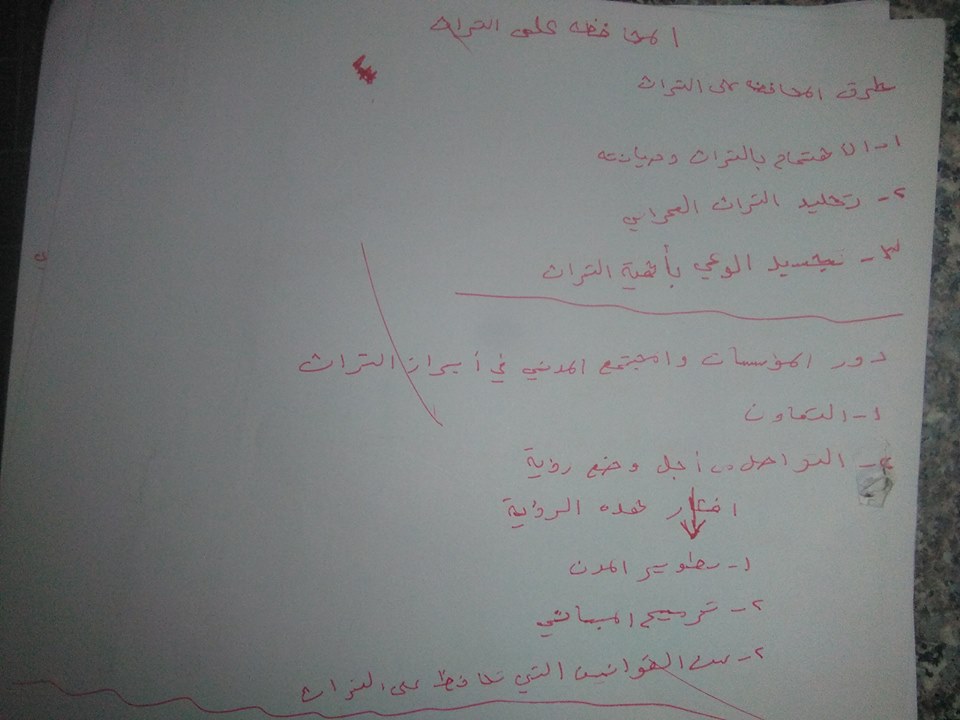 المحافظة على التراث
طرق المحافظة على التراث
١- الاهتمام بالتراث وصيانته
٢- تخليد التراث العمراني
٣- تجسيد الوعي بأهمية التراث
دور المؤسسات والمجتمع المدني في أبراز التراث
١- التعاون
٢- التواصل من أجل وضع رؤية
اختار هذه الرؤية
١- تطوير المدن
٢- ترميم المباني
٢- سن القوانين التي تحافظ على التراث